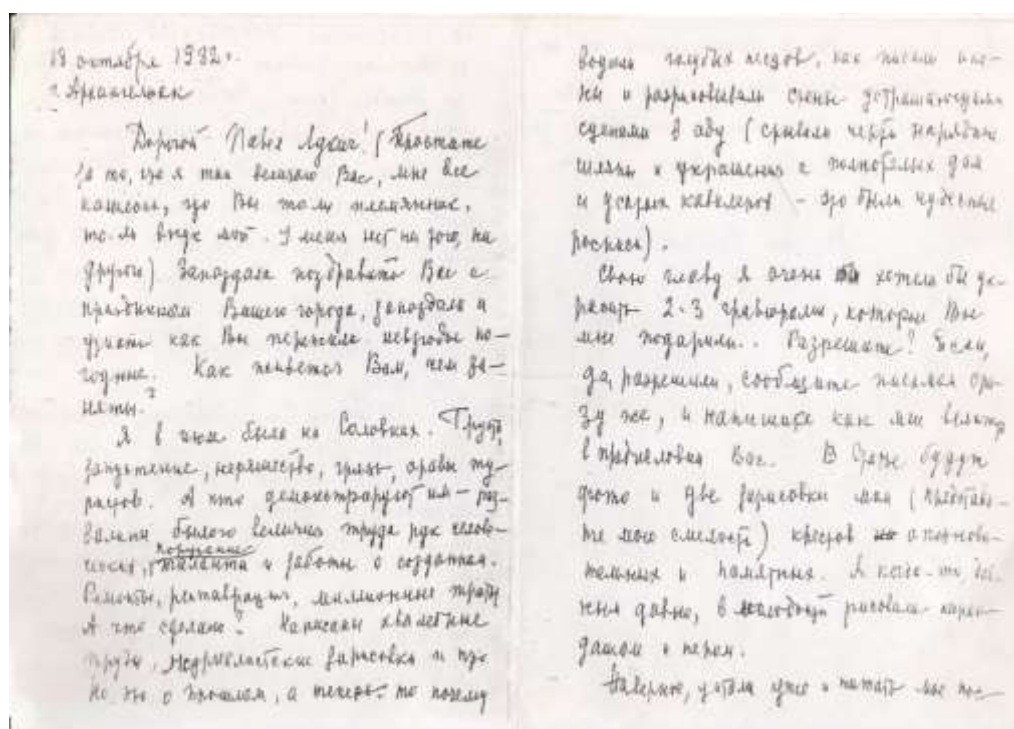 18 октября 1982 г.
г. Архангельск
Дорогой Павел ! (Простите
за то, что я так величаю Вас, мне все
кажется, что Вы то ли племянник,
то ли внук мой. У меня нет ни того, ни
другого). Запоздало поздравить Вас с
праздником Вашего города, запоздало и
узнать как Вы пережили невзгоды по-
годные. Как живется Вам, чем за-
няты?
Я в июле была на Соловках. Грусть,
запустение, неряшество, грязь, оравы ту-
ристов. А что демонстрируют им — раз-
валины былого величия труда рук челове-
ческих, поругание таланта и работы о созданном.
Ремонты, реставрация, миллионные траты
А что сделано? Написаны хвалебные
труды, зарисовки и пр.
Но это о прошлом, а теперь-то почему
водили голубых песцов, как писали ико-
ны и разрисовывали стены устрашающими
сценами в аду (срывали черти нарядные
шляпы и украшения с дам
и кавалеров — это были чудесные
росписи).
Свою главу я очень бы хотела бы ук-
расить 2-3 гравюрами, которые Вы
мне подарили. Разрешите? Если,
да, разрешили, сообщите письмом сра-
зу же, и напишите как мне величать
в предисловии Вас. В будут
фото и две зарисовки мои (представь-
те мою смелость) крестов
и памятных. Я когда-то,
давно, в молодости рисовала каран-
дашом и пером.
Наверное, устали уже и читать мое пос-